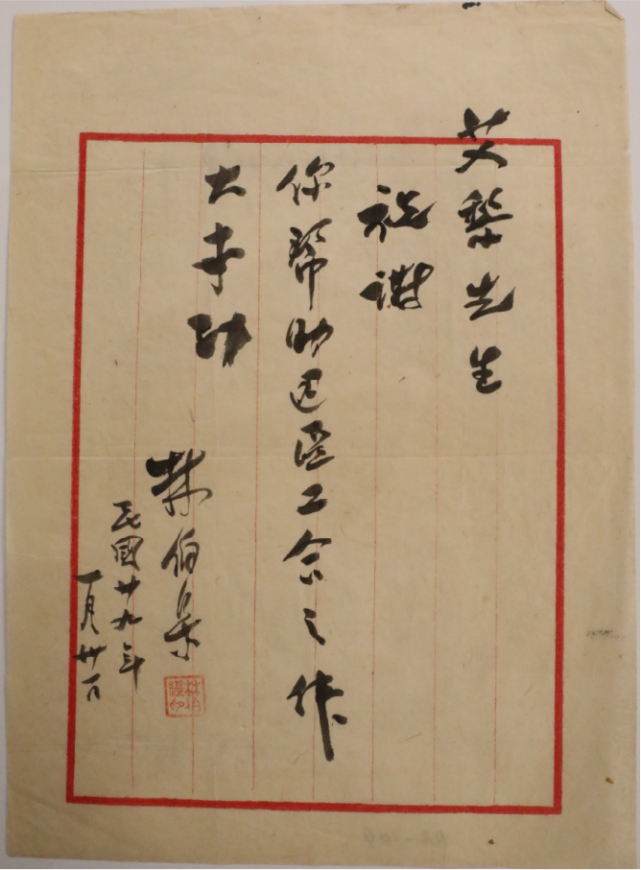 艾黎先生
祝謝
你幫助边區工合之作
大功
林伯渠
民國廿九年
一月廿一日
林伯渠印